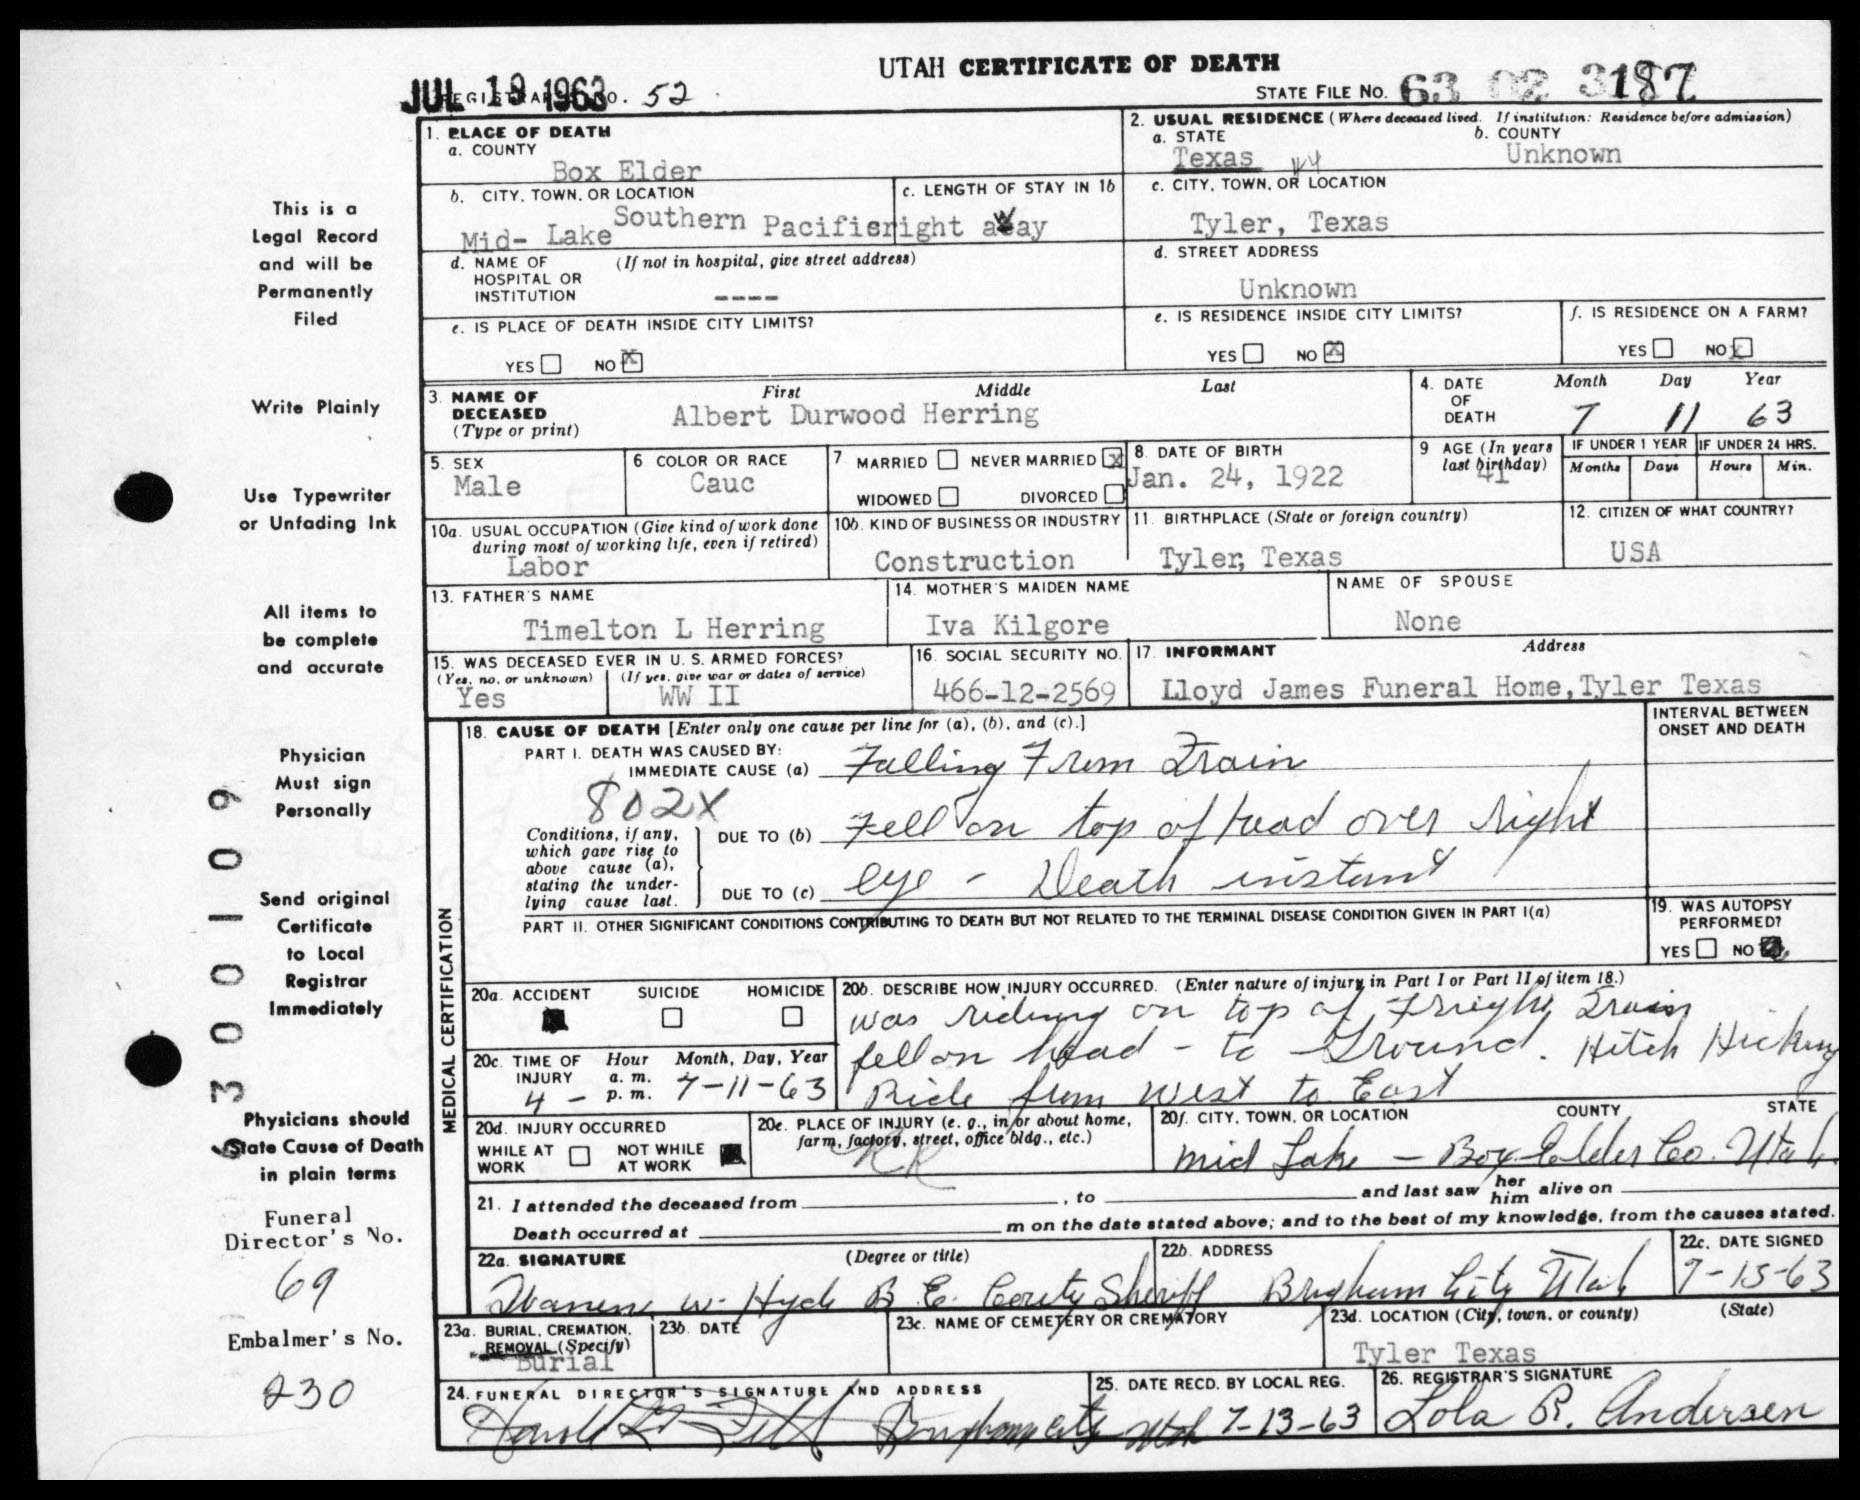 UTAH CERTIFICATE OF DEATH
JUL 19 1963
REGISTRAR'S NO. 52
STATE FILE NO. 63 02 3187
1. PLACE OF DEATH
a. COUNTY
Box Elder
2. USUAL RESIDENCE (Where deceased lived. If institution: Residence before admission)
a. STATE
b. COUNTY
Texas
Unknown
b. CITY, TOWN, OR LOCATION
c. LENGTH OF STAY IN 1b
Mid- Lake Southern Pacific right away
c. CITY, TOWN, OR LOCATION
Tyler, Texas
d. NAME OF HOSPITAL OR INSTITUTION
(If not in hospital, give street address)
----
d. STREET ADDRESS
Unknown
e. IS PLACE OF DEATH INSIDE CITY LIMITS?
YES NO X
e. IS RESIDENCE INSIDE CITY LIMITS?
YES NO X
f. IS RESIDENCE ON A FARM?
YES NO X
3. NAME OF DECEASED (Type or print)
First Middle Last
Albert Durwood Herring
4. DATE OF DEATH
Month Day Year
7 11 63
5. SEX
Male
6 COLOR OR RACE
Cauc
7 MARRIED NEVER MARRIED X
WIDOWED DIVORCED
8. DATE OF BIRTH
Jan. 24, 1922
9 AGE (In years last birthday)
41
IF UNDER 1 YEAR
Months Days
IF UNDER 24 HRS.
Hours Min.
10a. USUAL OCCUPATION (Give kind of work done during most of working life, even if retired)
Labor
10b. KIND OF BUSINESS OR INDUSTRY
Construction
11. BIRTHPLACE (State or foreign country)
Tyler, Texas
12. CITIZEN OF WHAT COUNTRY?
USA
13. FATHER'S NAME
Timelton L Herring
14. MOTHER'S MAIDEN NAME
Iva Kilgore
NAME OF SPOUSE
None
15. WAS DECEASED EVER IN U. S. ARMED FORCES?
(Yes, no, or unknown) (If yes, give war or dates of service)
Yes WW II
16. SOCIAL SECURITY NO.
466-12-2569
17. INFORMANT Address
Lloyd James Funeral Home, Tyler Texas
MEDICAL CERTIFICATION
18. CAUSE OF DEATH [Enter only one cause per line for (a), (b), and (c).]
INTERVAL BETWEEN ONSET AND DEATH
PART I. DEATH WAS CAUSED BY:
IMMEDIATE CAUSE (a) Falling From Train
802X
Conditions, if any, which gave rise to above cause (a), stating the underlying cause last.
DUE TO (b) Fell on top of head over right
DUE TO (c) eye - Death instant
PART II. OTHER SIGNIFICANT CONDITIONS CONTRIBUTING TO DEATH BUT NOT RELATED TO THE TERMINAL DISEASE CONDITION GIVEN IN PART I(a)
19. WAS AUTOPSY PERFORMED?
YES NO
20a. ACCIDENT SUICIDE HOMICIDE
20b. DESCRIBE HOW INJURY OCCURRED. (Enter nature of injury in Part I or Part II of item 18.)
was riding on top of Freight Train
fell on head - to Ground. Hitch Hicking
Ride from West to East
20c. TIME OF INJURY
Hour a. m. p. m. Month, Day, Year
4 - 7-11-63
20d. INJURY OCCURRED
WHILE AT WORK NOT WHILE AT WORK
20e. PLACE OF INJURY (e. g., in or about home, farm, factory, street, office bldg., etc.)
RR
20f. CITY, TOWN, OR LOCATION COUNTY STATE
Mid Lake - Box Elder Co. Utah
21. I attended the deceased from , to and last saw her him alive on
Death occurred at m on the date stated above; and to the best of my knowledge, from the causes stated.
22a. SIGNATURE (Degree or title)
Warren W. Hyde B. E. County Sheriff
22b. ADDRESS
Brigham City Utah
22c. DATE SIGNED
7-15-63
23a. BURIAL, CREMATION, REMOVAL (Specify)
Burial
23b. DATE
23c. NAME OF CEMETERY OR CREMATORY
23d. LOCATION (City, town, or county) (State)
Tyler Texas
24. FUNERAL DIRECTOR'S SIGNATURE AND ADDRESS
Harold Felt Brigham City Utah
25. DATE RECD. BY LOCAL REG.
7-13-63
26. REGISTRAR'S SIGNATURE
Lola R. Andersen
This is a
Legal Record
and will be
Permanently
Filed
Write Plainly
Use Typewriter
or Unfading Ink
All items to
be complete
and accurate
Physician
Must sign
Personally
Send original
Certificate
to Local
Registrar
Immediately
Physicians should
State Cause of Death
in plain terms
Funeral
Director's No.
69
Embalmer's No.
230
300109